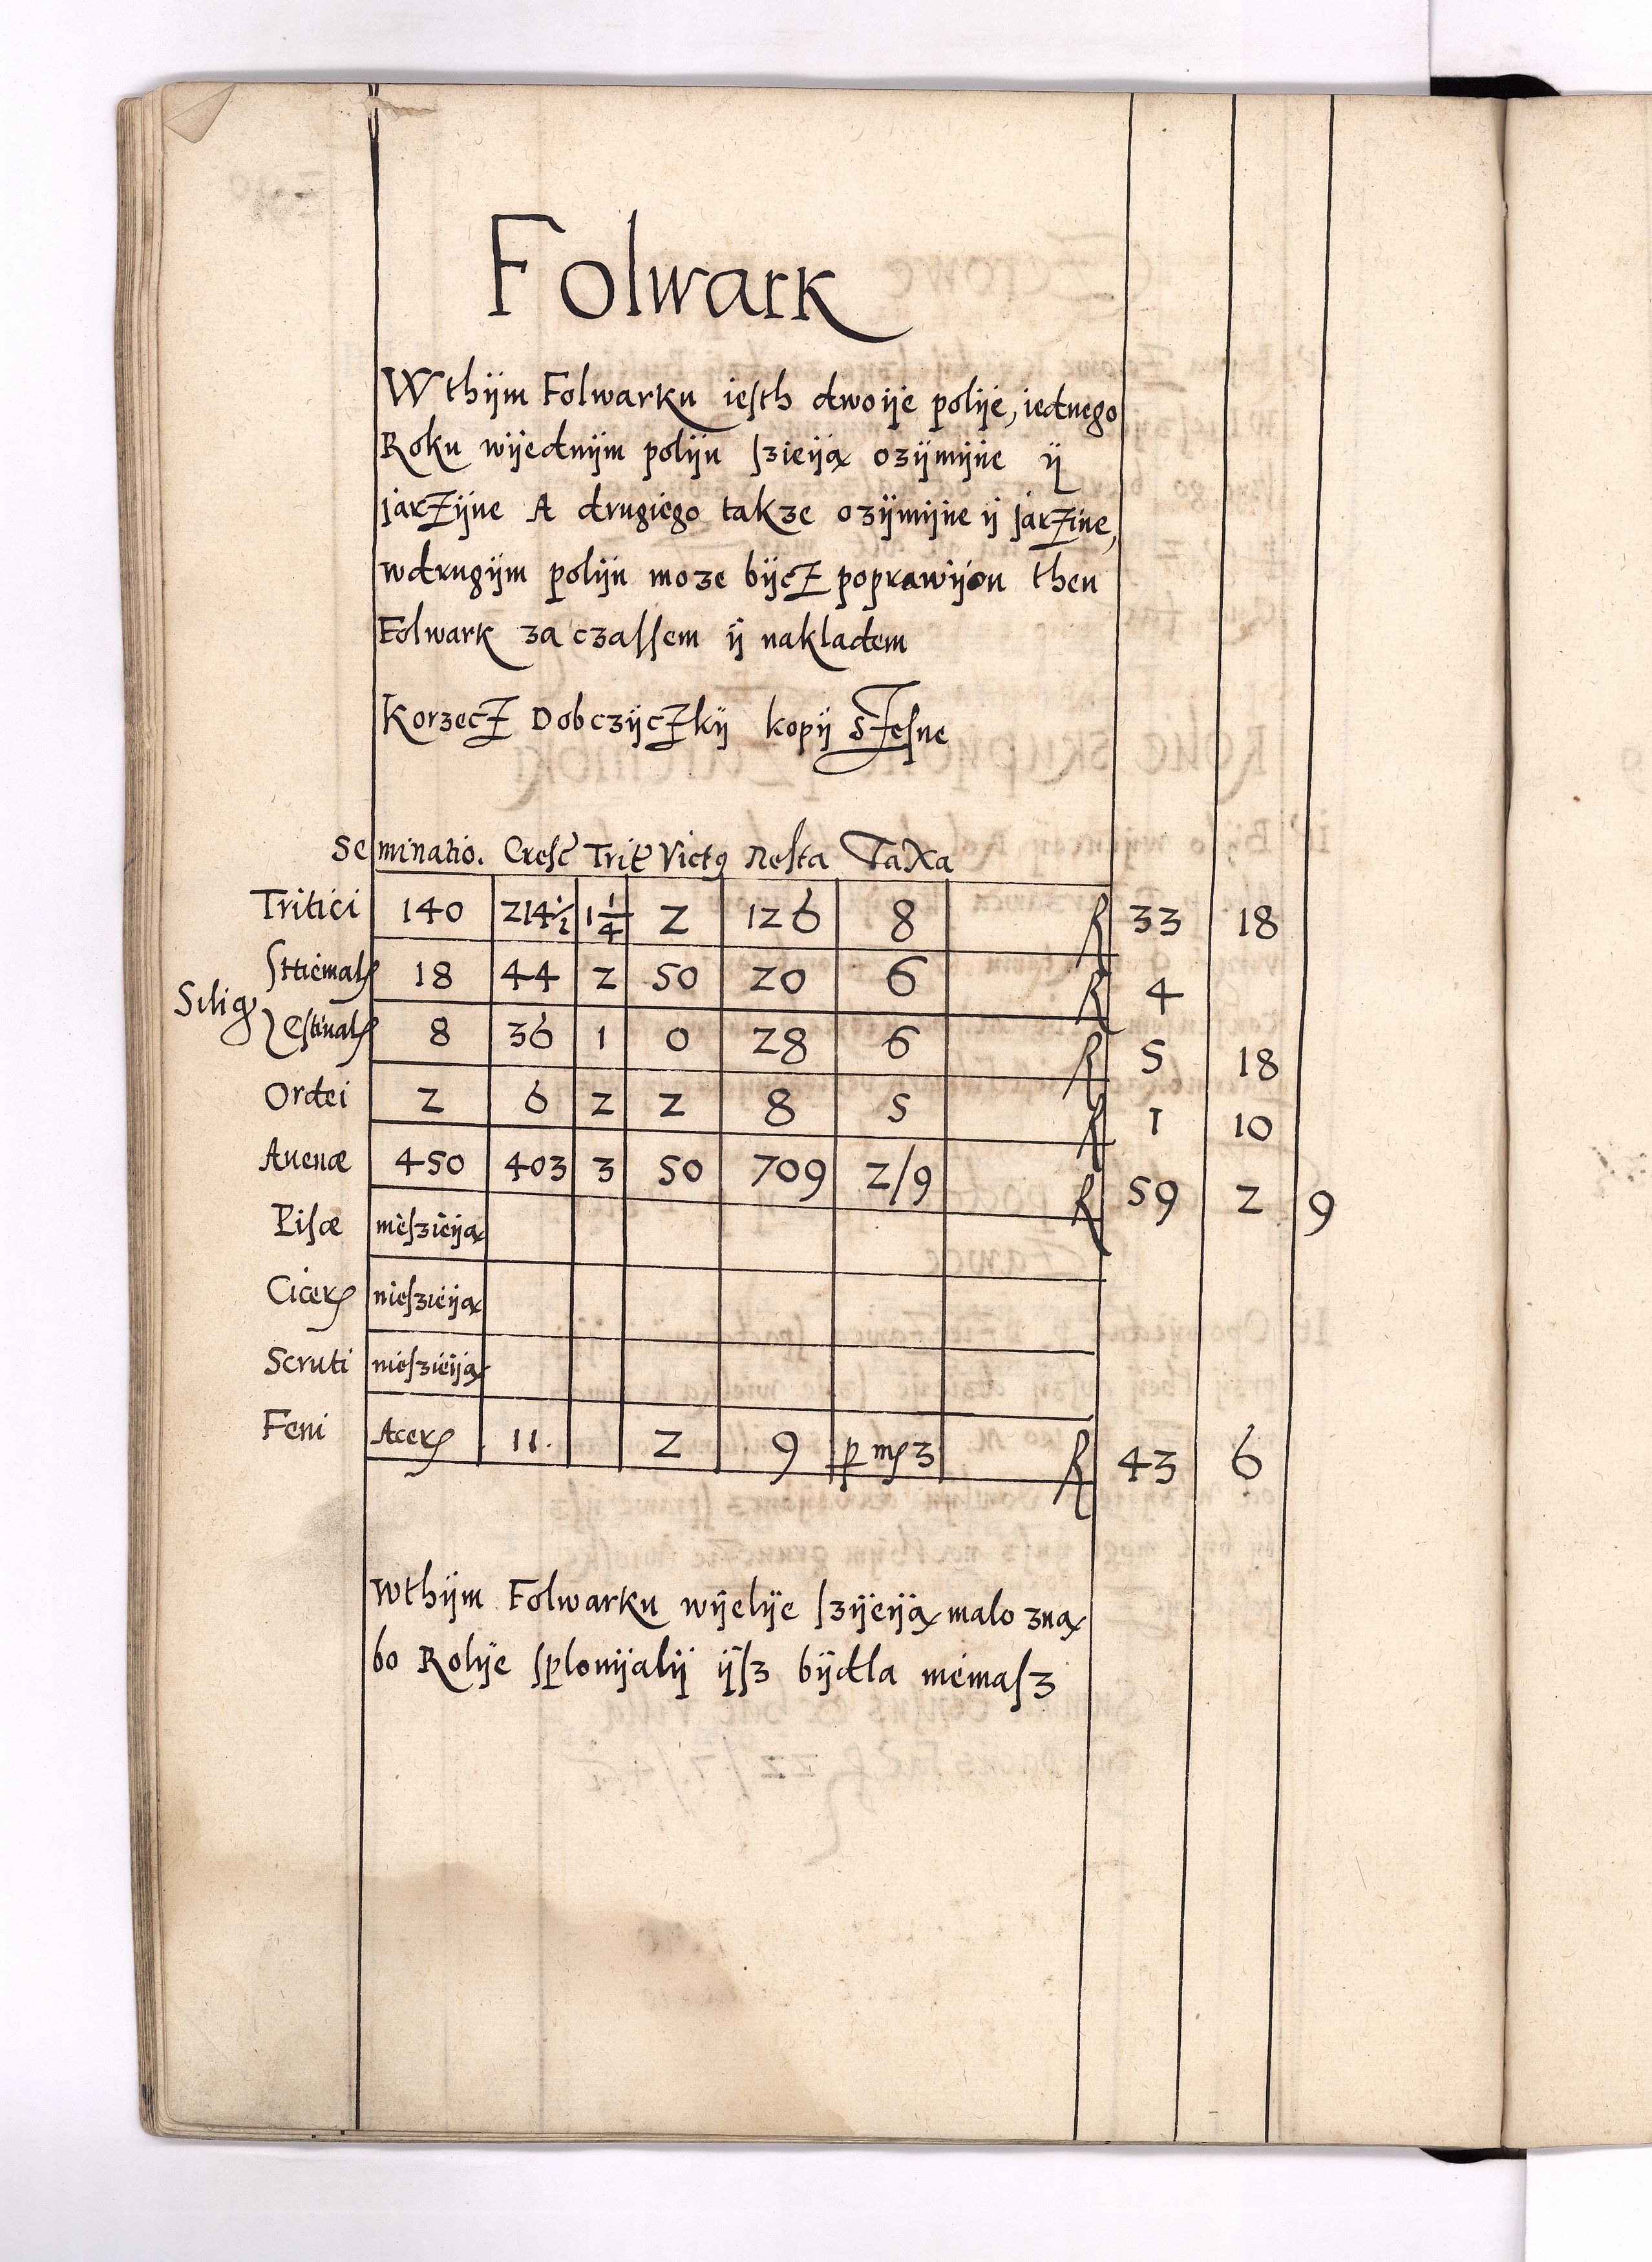 Folwark
Wthÿm Folwarku iesth dwoije polije, iednego
Roku wijednÿm polijn ſzieÿą ozÿmÿne ÿ
jarzÿne A drugiego takze ozÿmÿne ÿ jarzine,
wdrugÿm polijn moze bÿcz poprawÿon then
Folwark za czaſſem ÿ nakladem
Korzecz Dobczÿczkÿ kopÿ szeſne
Seminatio. Creſc Trit Victꝰ Reſta Taxa
Tritici 140 214½ 1¼ 2 126 8 R 33 18
Siligꝭ Hiemalꝭ 18 44 2 50 20 6 R 4
Eſtivalꝭ 8 36 1 0 28 6 R 5 18
Ordei 2 6 2 2 8 5 R 1 10
Auenæ 450 403 3 50 709 2/9 R 59 2 9
Piſæ nieſzieÿą
Cicerꝭ nieſzieÿą
Scruti nieſzieÿą
Feni Acerꝭ 11. 2 9 ꝑ mꝭ 3 R 43 6
Wthÿm Folwarku wÿelÿe ſzÿeÿą malo zną
bo Rolÿe ſplonÿalÿ ÿſz bÿdla niemaſz